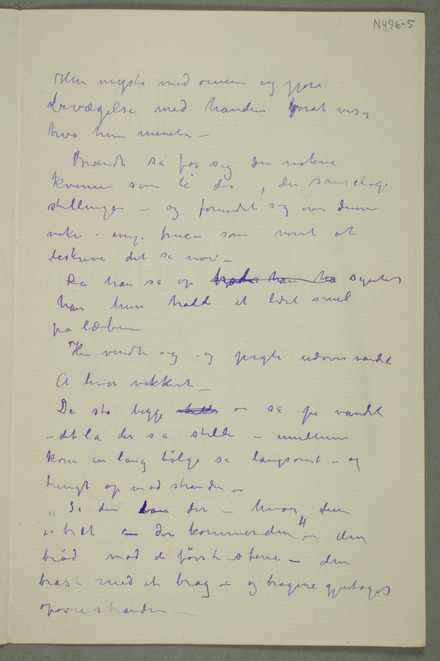 N496-5
Hun nejste med armen og gjore
bevægelse med handen forat vise
hva hun mente –
Brandt så for sig den nøkne
kvinne som lå der, den sanselige
stillinger – og forundret sig over denne
vakre unge fruen som vovet at
beskreve det så nøie –
Da han så op syntes
han hun hadde et lidet smil
på læben
Hun vendte sig og pegte udover vandet
A hvor vakkert –
De sto begge og så på vandet
– det lå der så stille – imellem
kom en lang bølge så langsomt – og
tungt op mod stranden –
"Se den der – hvor den
er bret – den kommer den" – den
brød mod de første stene – den
brast med et brag – og bragene gjentoges
opover stranden –